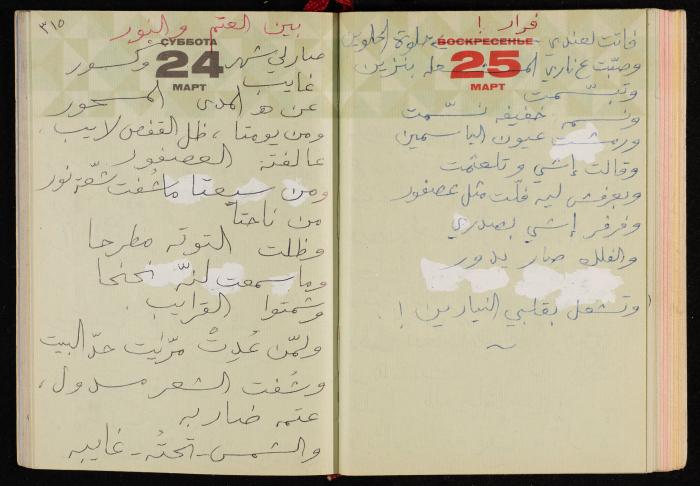 ٣١٥
بين العتم والنور
СУББОТА
24
МАРТ
صارلي شهر وكسور
غايب
عن هـ المدى المسحور
ومن يومتا، ظل القفص لايب
عالفتة العصفور
ومن سيعتا ما شفت شقّة نور
من ناحتا
وظلت التوته مطرحا
وما سمعت لنّه نحنحا
وشمتوا القرايب.
ولمّن عُدِتْ مرّيت حدّ البيت
وشفت الشعر مسدول،
عتمه ضاربه
والشمس - تحتُه - غايبه
فرار!
ВОСКРЕСЕНЬЕ
25
МАРТ
فاتت لعندي حلوة الحلوين
وصبّت ع ناري بنزين
وتبسّمت
ونسمه خفيفه نسّمت
ورمشت عيون الياسمين
وقالت إشي وتلعثمت
وبعرفش ليه فلّت مثل عصفور
وفرفر إشي بصدري
والفلك صار يدور
وتشعل بقلبي النيارين!